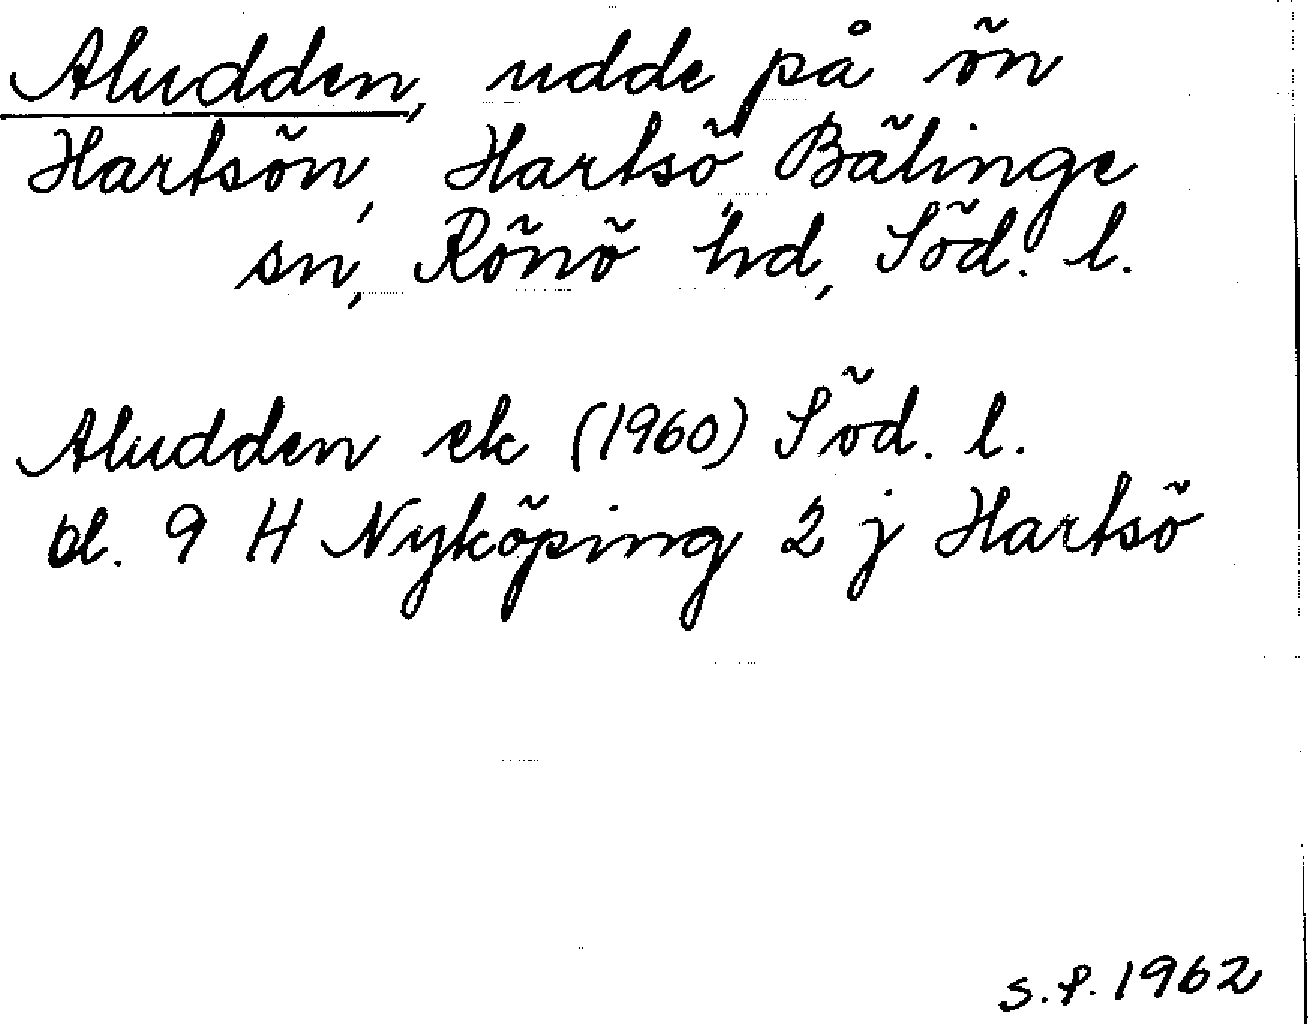 Aludden, udde på ön
Hartsön, Hartsö, Bälinge
sn, Rönö hd, Söd. l.
Aludden ek (1960) Söd. l.
bl. 9 H Nyköping 2 j Hartsö
S.P. 1962